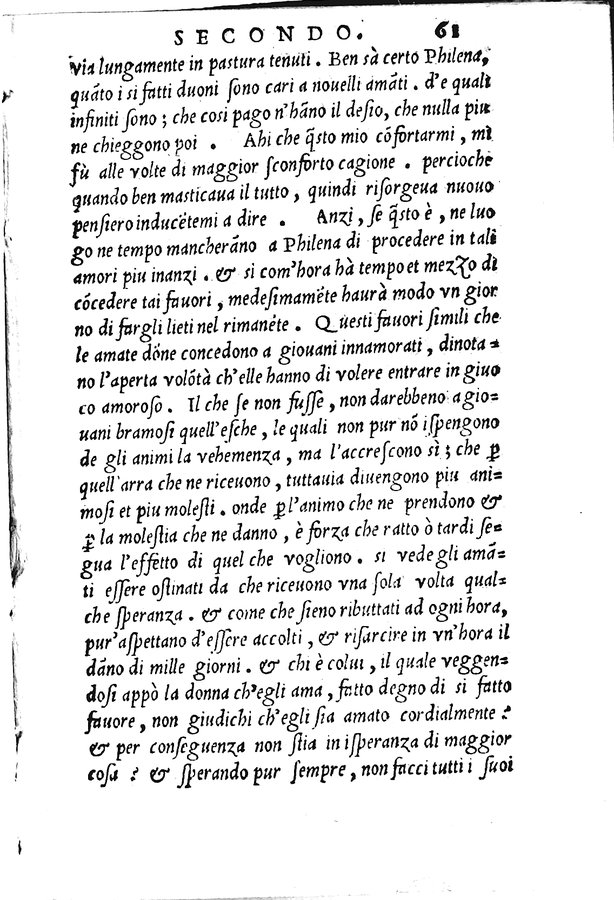 SECONDO. 61
via lungamente in pastura tenuti. Ben sà certo Philena,
quãto i si fatti duoni ſono cari a nouelli amãti. d'e quali
infiniti ſono; che cosi pago n'hãno il deſio, che nulla piu
ne chieggono poi. Ahi che q̃sto mio cõfortarmi, mi
fù alle volte di maggior ſconforto cagione. percioche
quando ben masticaua il tutto, quindi riſorgeua nuouo
penſiero inducẽtemi a dire. Anzi, ſe q̃sto è, ne luo
go ne tempo mancherãno a Philena di procedere in tali
amori piu inanzi. & si com'hora hà tempo et mezzo di
cõcedere tai fauori, medeſimamẽte haurà modo vn gior
no di fargli lieti nel rimanẽte. Questi fauori ſimili che
le amate dõne concedono a giouani innamorati, dinota=
no l'aperta volõtà ch'elle hanno di volere entrare in giuo
co amoroso. Il che ſe non fuſſe, non darebbeno a gio=
uani bramosi quell'eſche, le quali non pur nõ iſpengono
de gli animi la vehemenza, ma l'accreſcono sì; che ꝑ
quell'arra che ne riceuono, tuttauia diuengono piu ani=
mosi et piu moleſti. onde ꝑ l'animo che ne prendono &
ꝑ la moleſtia che ne danno, è forza che ratto ò tardi ſe=
gua l'effetto di quel che vogliono. si vede gli amã=
ti eſſere oſtinati da che riceuono vna ſola volta qual=
che ſperanza. & come che ſieno ributtati ad ogni hora,
pur'aſpettano d'eſſere accolti, & riſarcire in vn'hora il
dãno di mille giorni. & chi è colui, il quale veggen=
dosi appò la donna ch'egli ama, fatto degno di si fatto
fauore, non giudichi ch'egli ſia amato cordialmente?
& per conſeguenza non ſtia in iſperanza di maggior
coſa? & ſperando pur ſempre, non facci tutti i ſuoi